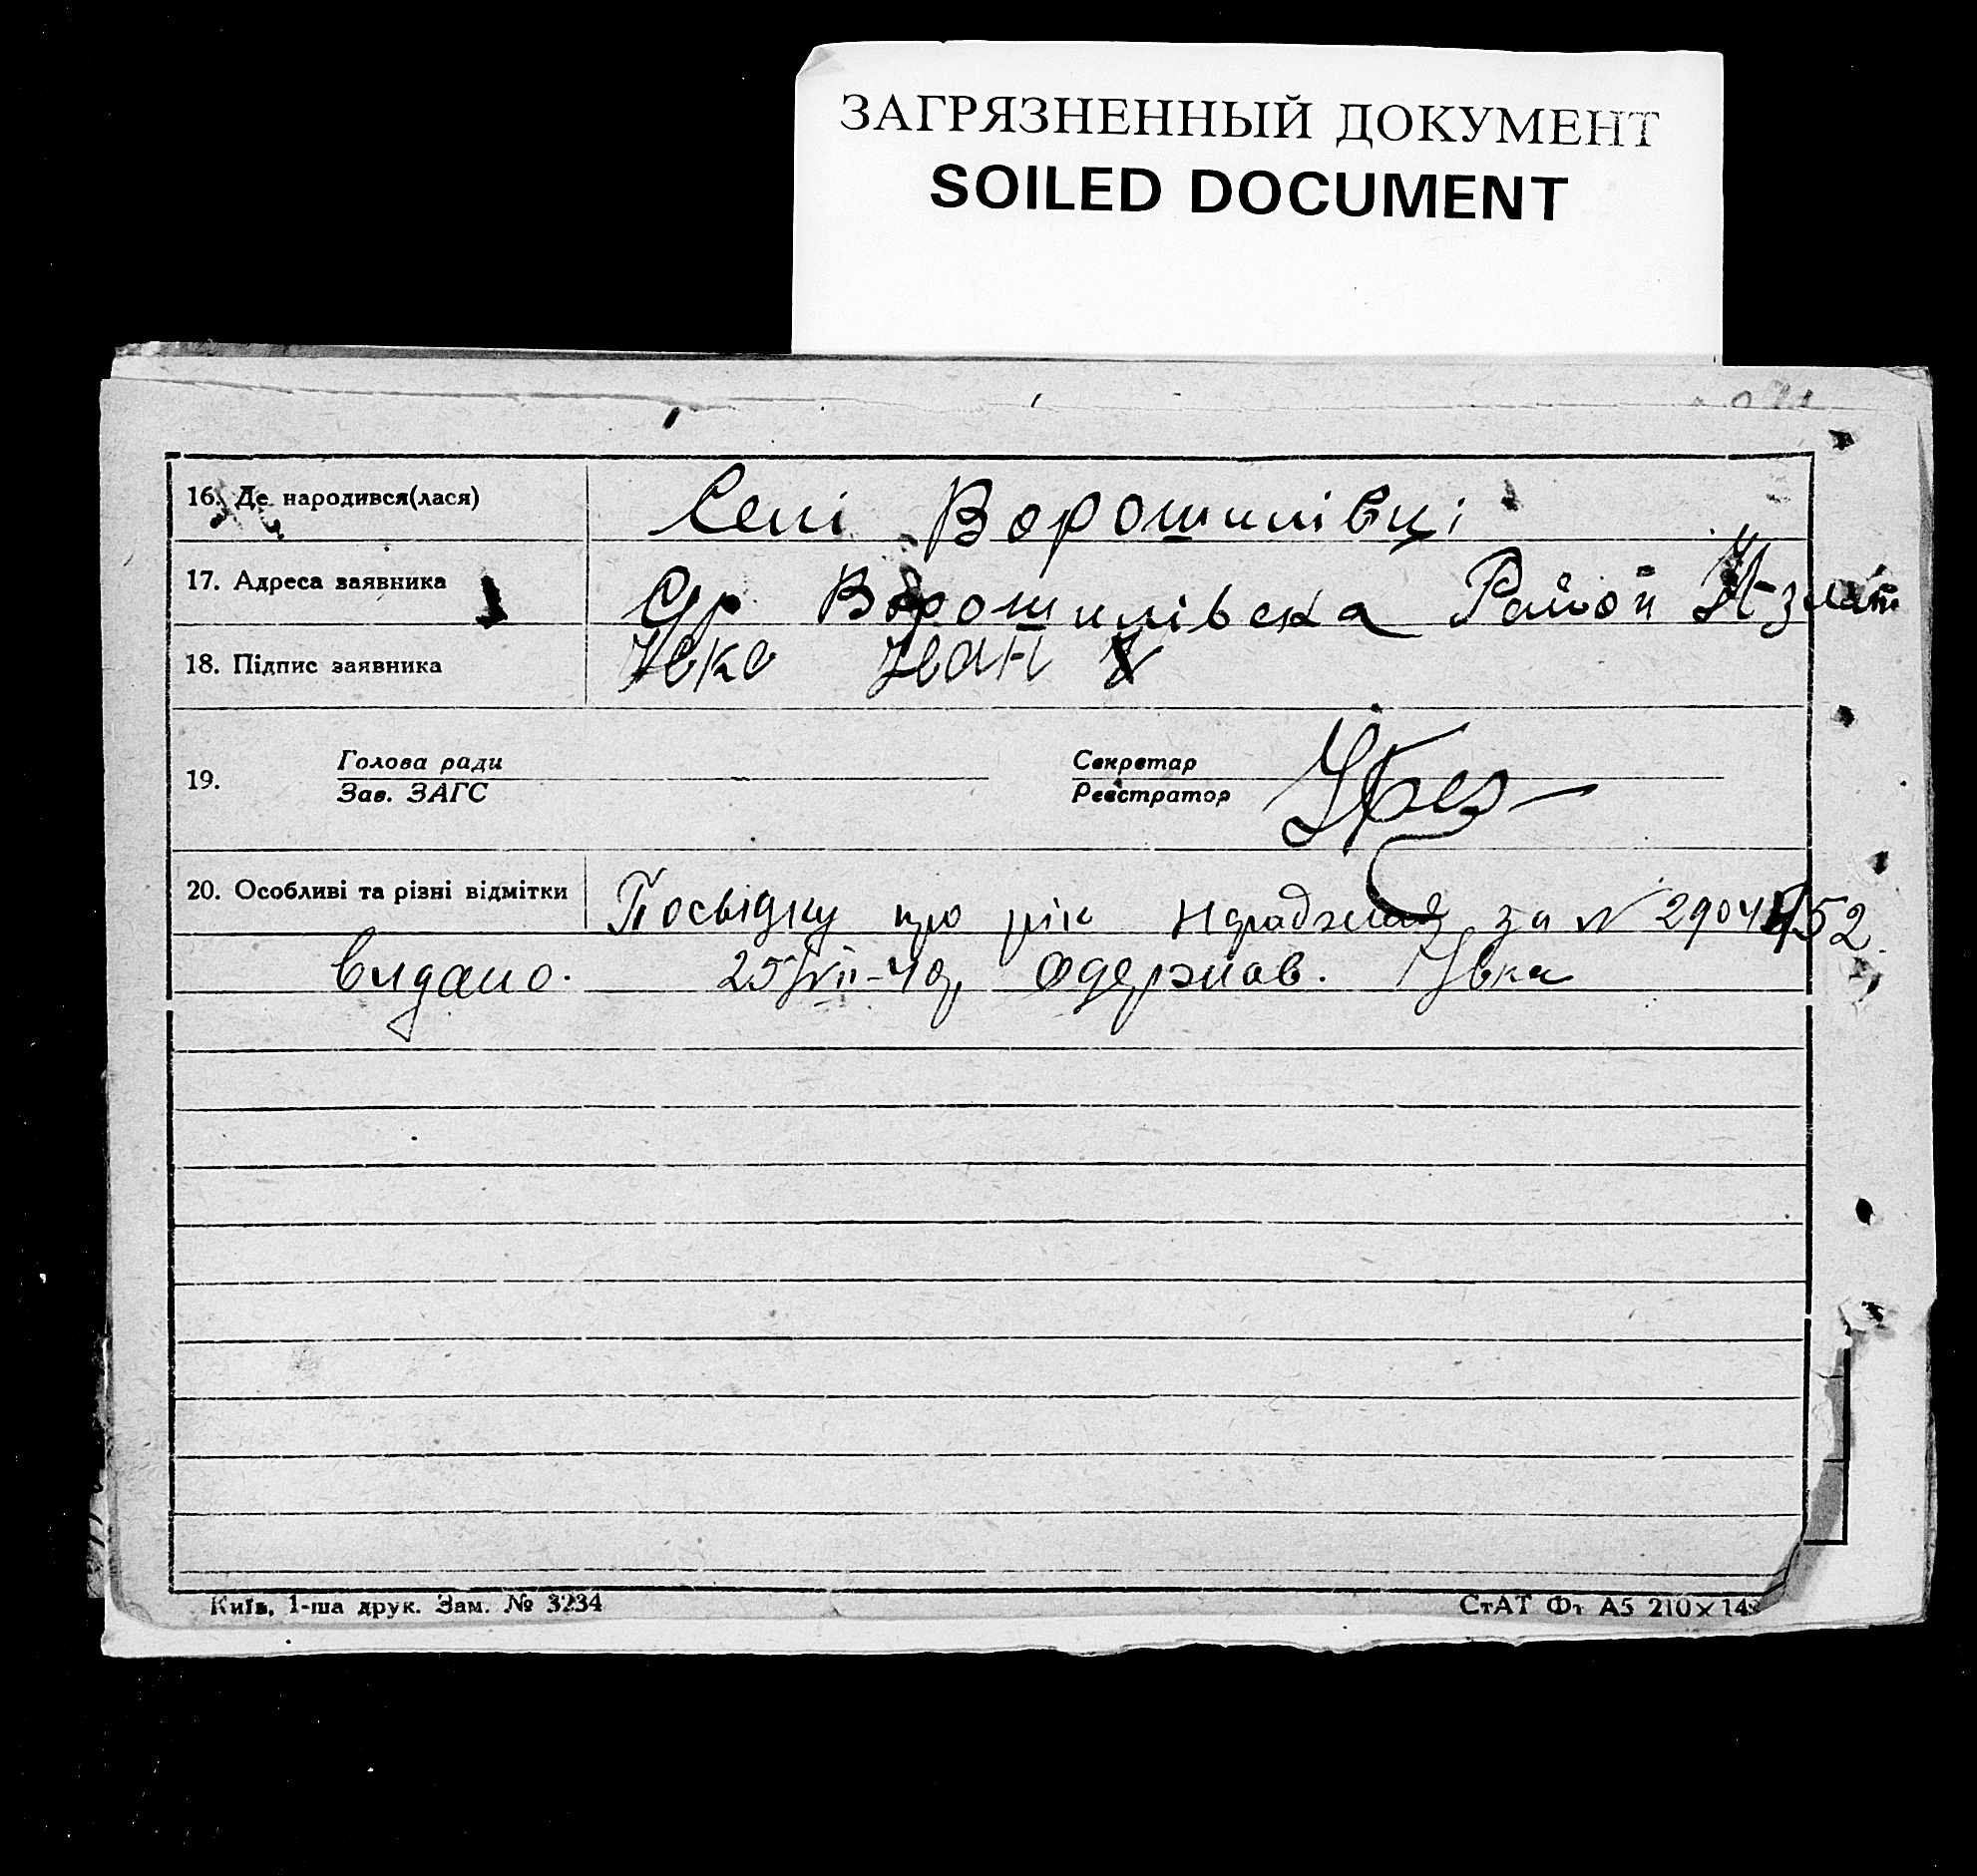 ЗАГРЯЗНЕННЫЙ ДОКУМЕНТ
SOILED DOCUMENT
16. Де народився(лася) Селі Ворошилівці
17. Адреса заявника С/р Ворошилівска Район
18. Підпис заявника Ивко Иван
19. Голова ради Секретар
Зав. ЗАГС Реєстратор
20. Особливі та різні відмітки Посвідку про рік за N
видано. одержав. Ивка
Київ, 1-ша друк. Зам. № 3234 СтАТ Фт А5 210×148